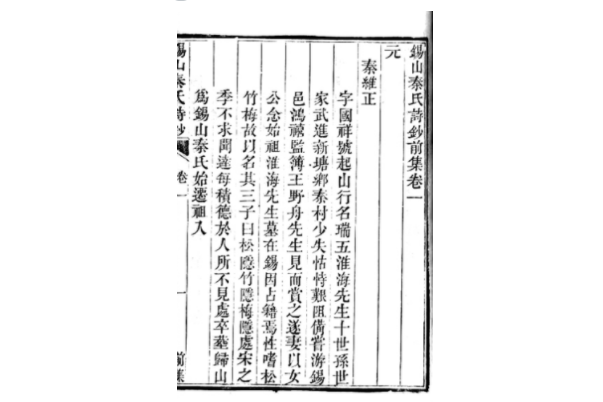 錫山秦氏詩鈔前集卷一
元
秦維正
字國祥號起山行名瑞五淮海先生十世孫世
家武進新塘鄉秦村少失怙恃艱阻備嘗游錫
邑鴻禧監簿王野舟先生見而賞之遂妻以女
公念始祖淮海先生墓在錫因占籍焉性嗜松
竹梅故以名其三子曰松隱竹隱梅隱處宋之
季不求聞達每積德於人所不見處卒塟歸山
為錫山秦氏始遷祖入
錫山秦氏詩鈔 卷一 一 前集